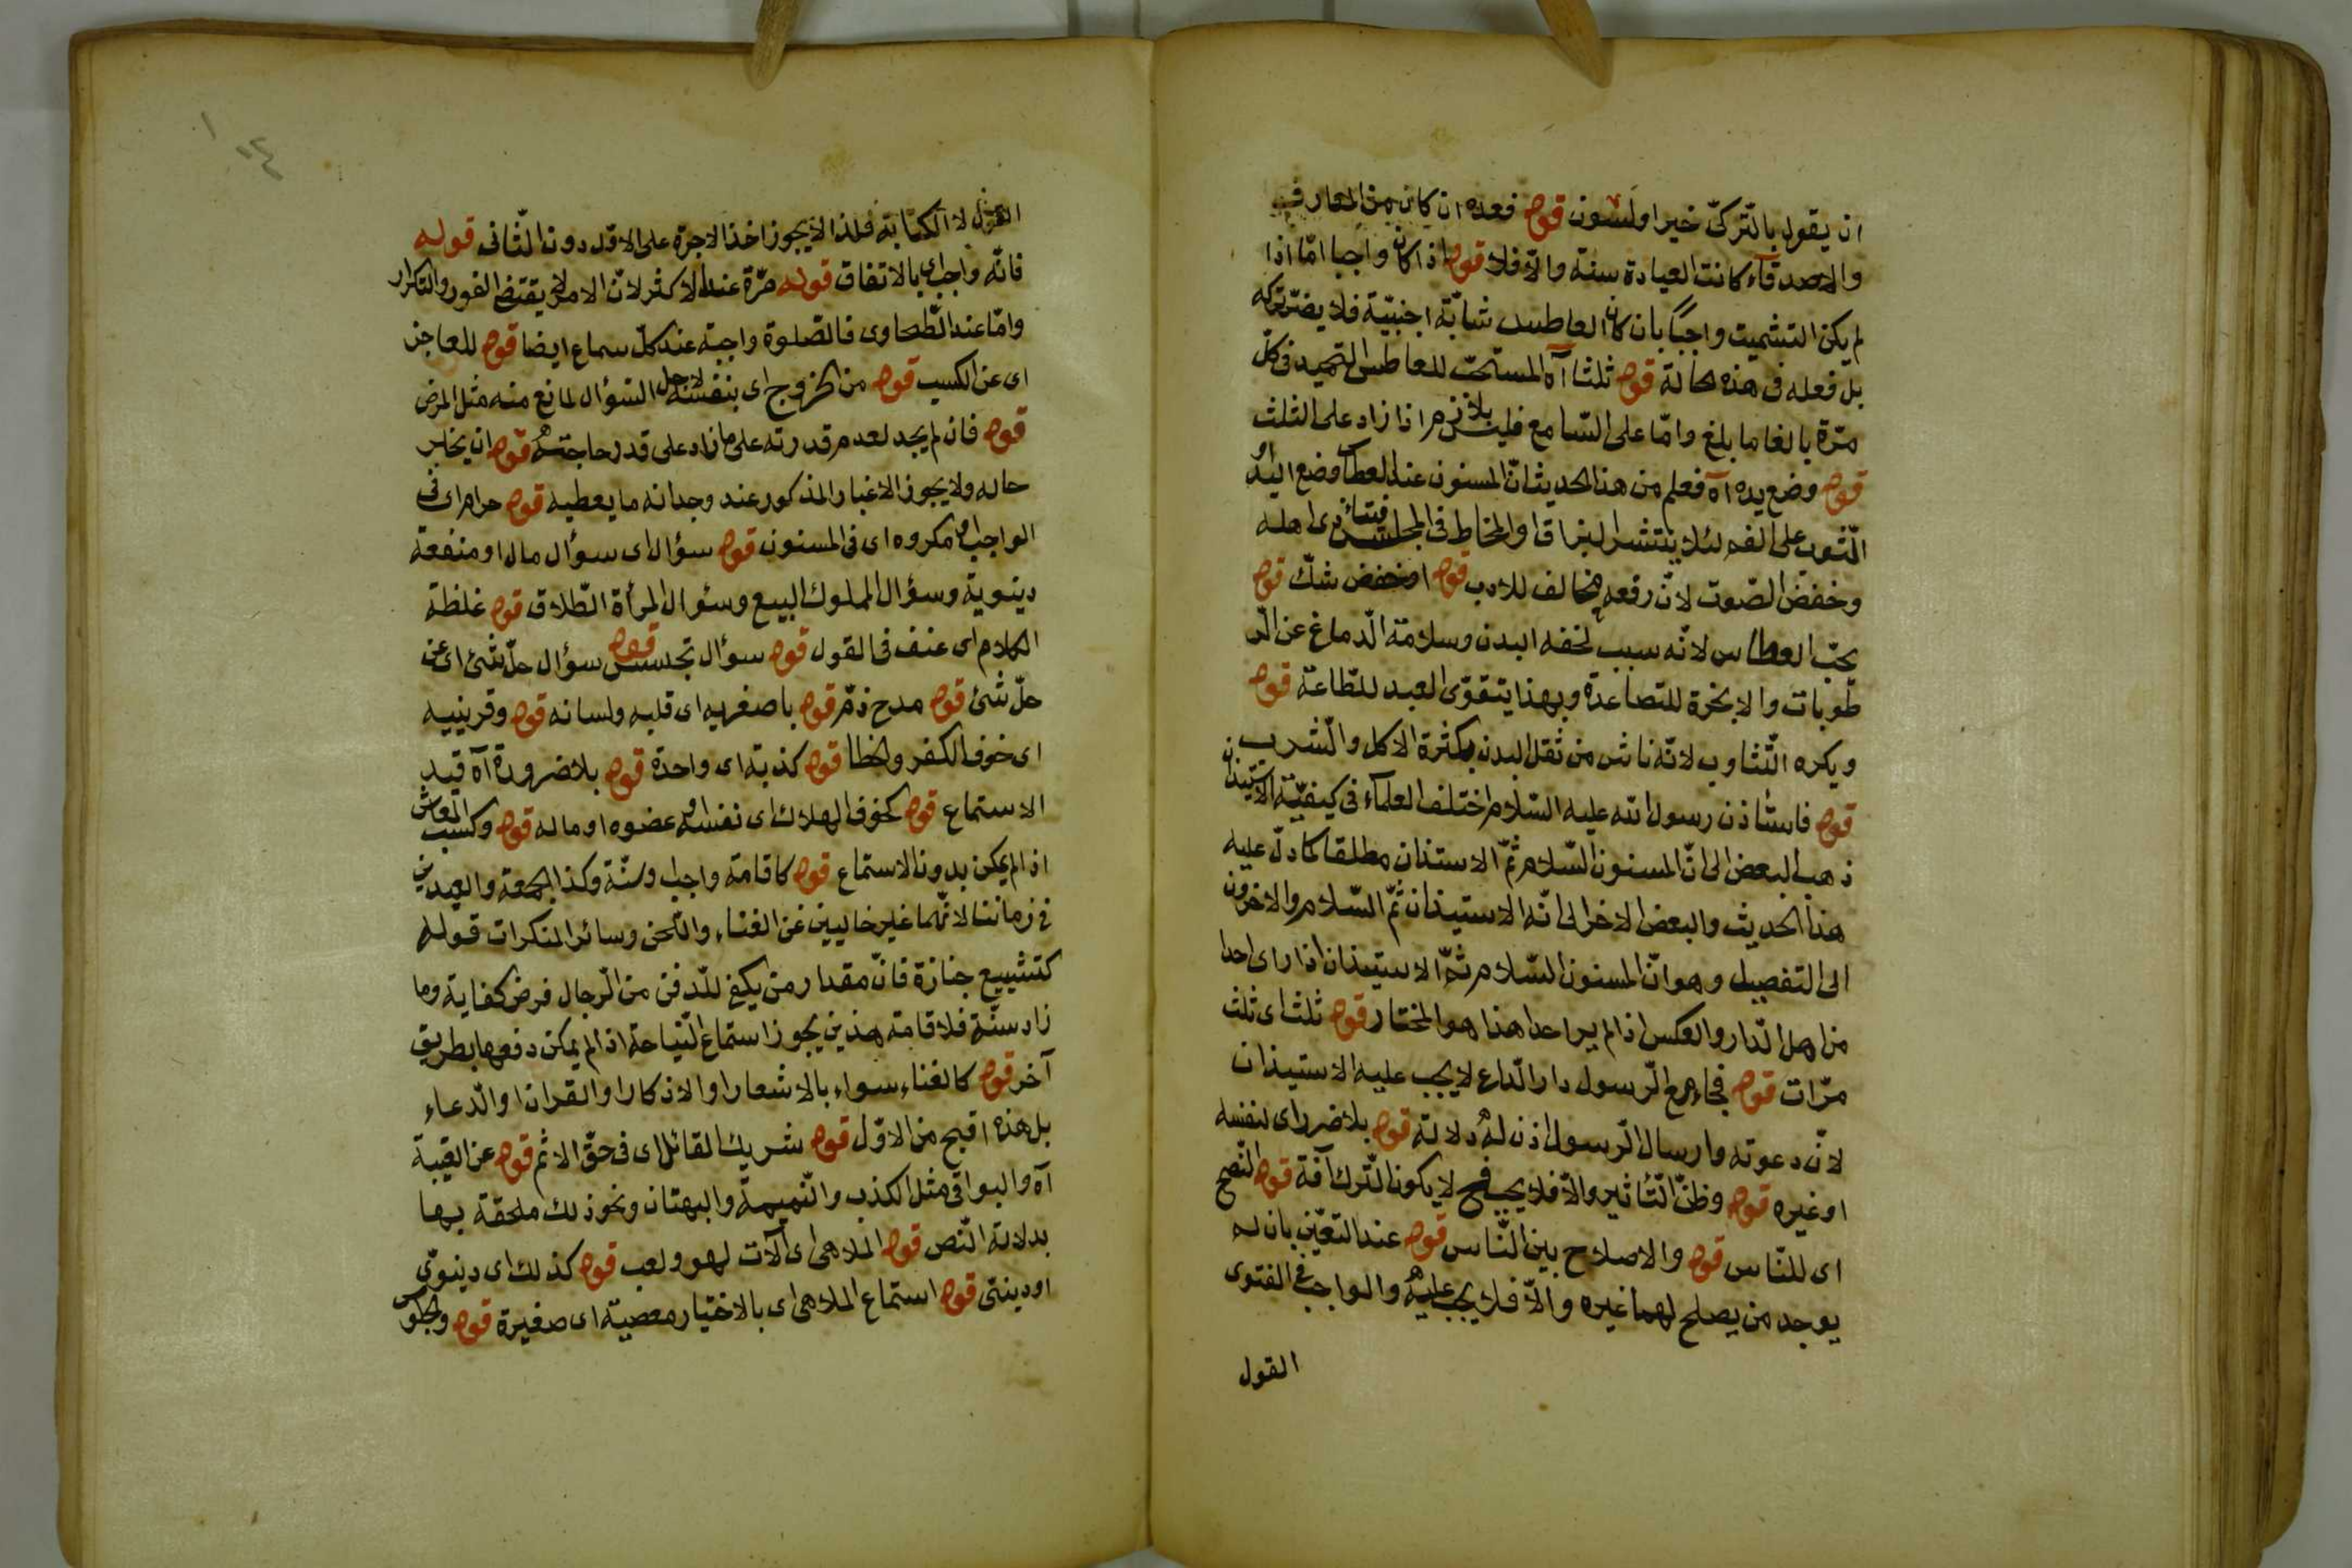 ان يقول بالتركى خير اولسون قوله فعده ان كان من المعارف
والاصدقاء كانت العيادة سنة والّا فلا قوله اذا كان واجبا امّا اذا
لم يكن التشميت واجبًا بان كان العاطس شابّة اجنبيّة فلا يضرّ تركه
بل فعله فى هذه الحالة قوله ثلثا آه المستحبّ للعاطس التحميد فى كلّ
مرّة بالغا ما بلغ وامّا على السّامع فليس بلازم اذا زاد على الثلث
قوله وضع يده آه فعلم من هذا الحديث انّ المسنون عند العطاس وضع اليد او
الثّوب على الفم لئلا ينتشر البزاق والمخاط فى المجلس فيتأذى اهله
وخفض الصّوت لانّ رفعه مخالف للادب قوله او خفض شكّ قوله
يحبّ العطاس لانّه سبب لخفه البدن وسلامة الدّماغ عن الر
طوبات والابخرة المتصاعدة وبهذا يتقوّى العبد للطّاعة قوله
ويكره التّثاوب لانّه ناش من ثقل البدن بكثرة الاكل والشّرب
قوله فاستأذن رسول الله عليه السّلام اختلف العلماء فى كيفيّة الاستيذان
ذهب البعض الى انّ المسنون السّلام ثمّ الاستذان مطلقا كما دلّ عليه
هذا الحديث والبعض الاخر الى انّه الاستيذان ثمّ السّلام والاخرون
الى التفصيل وهو انّ المسنون السّلام ثمّ الاستيذان اذا راى احدا
من اهل الدّار والعكس اذا لم ير احدا هذا هو المختار قوله ثلث اى ثلث
مرّات قوله فجاء مع الرّسول دار الدّاع لا يجب عليه الاستيذان
لانّ دعوته وارسال الرّسول اذن له دلالة قوله بلا ضرر اى لنفسه
او غيره قوله وظنّ التّأثير والّا فلا يجب فح لا يكون التّرك آفة قوله النّصح
اى للنّاس قوله والاصلاح بين النّاس قوله عند التعيّن بان لم
يوجد من يصلح لهما غيره والّا فلا يجب عليه والواجب فى الفتوى
القول
القول لا الكتابة فلذا لا يجوز اخذ الاجرة على الاوّل دون الثّانى قوله
فانّه واجب اى بالاتفاق قوله مرّة عند الاكثر لانّ الامر لا يقتضى الفور والتكرار
وامّا عند الطّحاوى فالصّلوة واجبة عند كلّ سماع ايضا قوله للعاجز
اى عن الكسب قوله من الخروج اى بنفسه لاجل السّؤال لمانع منه مثل المرض
قوله فان لم يجد لعدم قدرته على ما زاد على قدر حاجته قوله ان يخبر
حاله ولا يجوز الاخبار المذكور عند وجدانه ما يعطيه قوله حرام اى فى
الواجب او مكروه اى فى المسنون قوله سؤال اى سؤال مال او منفعة
دينوية وسؤال المملوك البيع وسئوال المرأة الطّلاق قوله غلظة
الكلام اى عنف فى القول قوله سؤال تجسس قوله سؤال حلّ شئ اى عن
حلّ شئ قوله مدح ذمّ قوله باصغريه اى قلبه ولسانه قوله وقرينيه
اى خوف الكفر والخطا قوله كذبة اى واحدة قوله بلا ضرورة آه قيد
الاستماع قوله كخوف الهلاك اى نفسه او عضوه او ماله قوله وكسب المعاش
اذا لم يمكن بدون الاستماع قوله كاقامة واجب وسنّة وكذا الجمعة والعيدين
فى زماننا لانّهما غير خاليين عن الغناء والتّحن وسائر المنكرات قوله
كتشييع جنازة فانّ مقدار من يكفى للدّفن من الرّجال فرض كفاية وما
زاد سنّة فلاقامة هذين يجوز استماع النّياحة اذا لم يمكن دفعها بطريق
آخر قوله كالغناء سواء بالاشعار او الاذكار او القران او الدّعاء
بل هذه اقبح من الاوّل قوله شريك القائل اى فى حقّ الاثم قوله عن الغيبة
آه والبواقى مثل الكذب والنّميمة والبهتان ونحو ذلك ملحقة بها
بدلالة النّص قوله الملاهى اى آلات لهو ولعب قوله كذلك اى دينوىّ
او دينىّ قوله استماع الملاهى اى بالاختيار معصية اى صغيرة قوله والجلوس